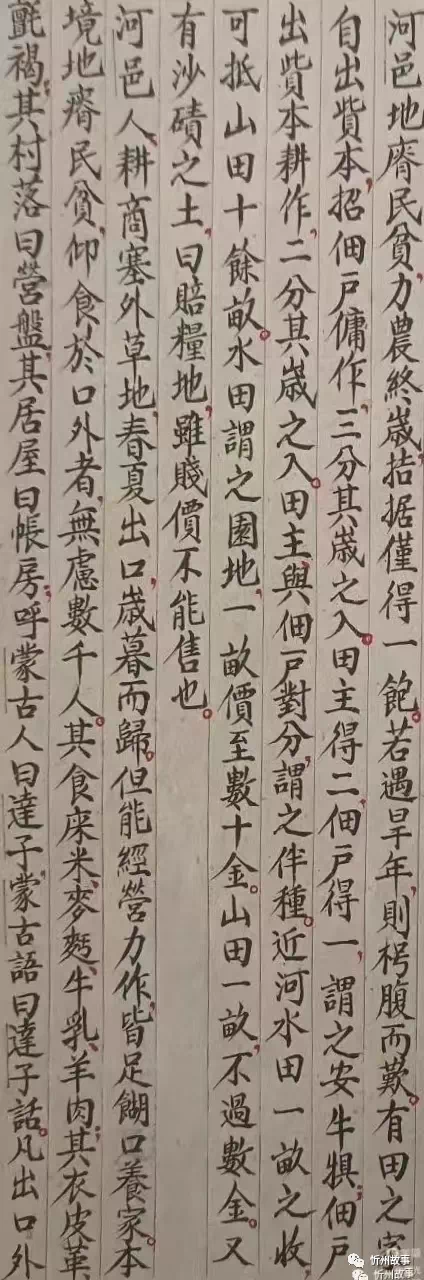 河邑地瘠民貧，力農終歲，拮据僅得一飽。若遇旱年，則枵腹而歎。有田之家
自出貲本，招佃戶傭作，三分其歲之入。田主得二，佃戶得一，謂之安牛犋；佃戶
出貲本耕作，二分其歲之入。田主與佃戶對分，謂之伴種。近河水田一畝之收，
可抵山田十餘畝。水田謂之園地，一畝價至數十金。山田一畝，不過數金。又
有沙磧之土，曰賠糧地，雖賤價不能售也。
河邑人，耕商塞外草地，春夏出口，歲暮而歸。但能經營力作，皆足餬口養家。本
境地瘠民貧，仰食於口外者，無慮數千人。其食床米、麥麪、牛乳、羊肉；其衣皮革
氈褐；其村落曰營盤；其居屋曰帳房；呼蒙古人曰達子，蒙古語曰達子話。凡出口外
忻州故事
忻州故事